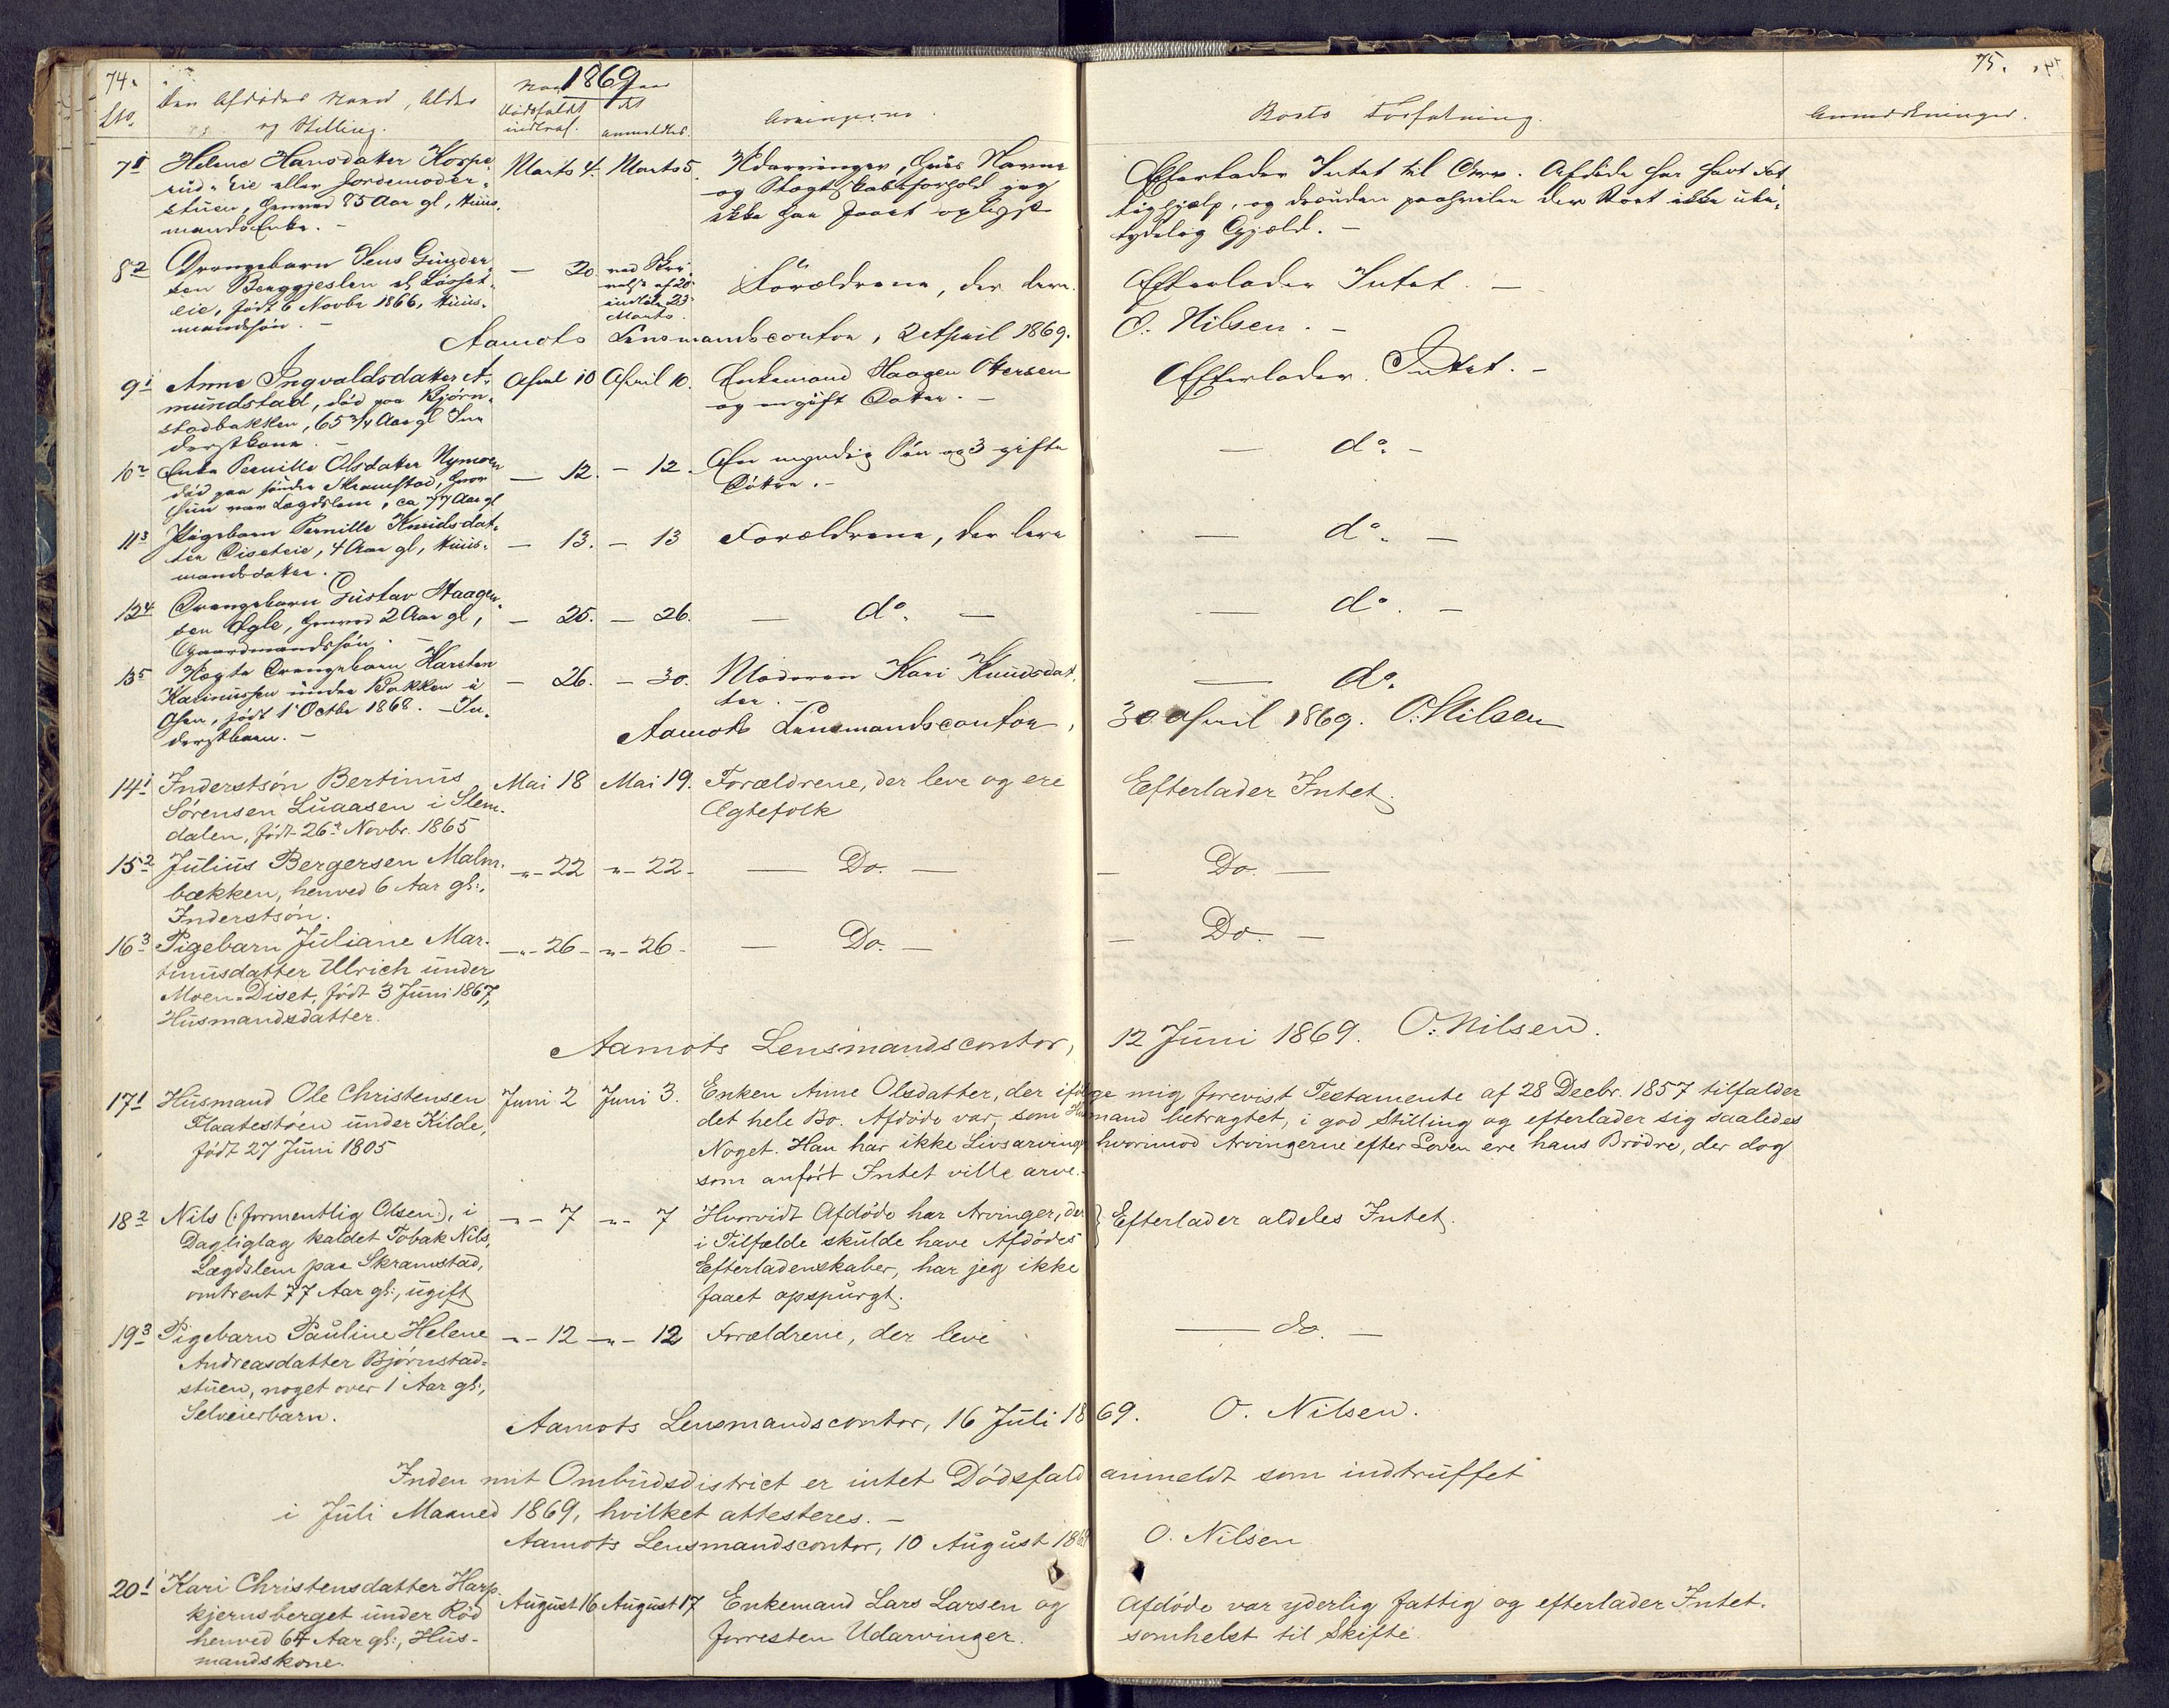 74.
1869
75.
No.
Den Afdødes Navn, Alder
og Stilling.
Naar
Dødsfaldet
indtraf.
det
anmeldtes.
Arvingerne.
Boets Forfatning.
Anmærkninger.
7 1 Helene Hansdatter Korpe-
rud-Eie eller Jordemoder-
stuen, henved 85 Aar gl, Huus-
mandsenke. -
Marts 4. Marts 5. Udarvinger, hvis Navne
og Slægtskabsforhold jeg
ikke har faaet oplyst
Efterlader Intet til Arv. Afdøde har havt Fat-
tighjælp, og desuden paahviler der Boet ikke ube-
tydelig Gjæld. -
8 2 Drengebarn Jens Gunder-
sen Berggjeslen af Løsset-
eie, født 6 Novbr 1866, Huus-
mandssøn. -
- 20. ved Skri-
velse af 20
indtil 23
Marts.
Forældrene, der leve.
Efterlader Intet. -
Aamots Lensmandscontor, 2 April 1869.
O. Nilsen. -
9 1 Anne Ingvaldsdatter A-
mundstad, død paa Bjørn-
stadbakken, 65 3/4 Aar gl In-
derstkone. -
April 10 April 10. Enkemand Haagen Ottersen
og ugift Datter. -
Efterlader Intet. -
10 2 Enke Pernille Olsdatter Nymoen
død paa søndre Skramstad, hvor
hun var Lægdslem, ca 77 Aar gl
- 12. - 12. En myndig Søn og 3 gifte
Døtre. -
- do. -
11 3 Pigebarn Pernille Knudsdat-
ter Diseteie, 4 Aar gl, Huus-
mandsdatter. -
- 13. - 13 Forældrene, der leve
- do. -
12 4 Drengebarn Gustav Haagen-
sen Ygle, henved 2 Aar gl,
Gaardmandssøn. -
- 25. - 26. - do. -
- do. -
13 5 Uægte Drengebarn Karsten
Karinussen under Bakken i
Osen, født 1 Octbr 1868. - In-
derstbarn. -
- 26. - 30. Moderen Kari Knudsdat-
ter. -
- do.
Aamots Lensmandscontor,
30 April 1869. O. Nilsen
14 1 Inderstsøn Bertinus
Sørensen Luaasen i Slem-
dalen, født 26de Novbr. 1865
Mai 18 Mai 19. Forældrene, der leve og ere
Ægtefolk
Efterlader Intet.
15 2 Julius Bergersen Malm-
bækken, henved 6 Aar gl.,
Inderstsøn.
-"- 22 -"- 22 - - Do. -
- Do. -
16 3 Pigebarn Juliane Mar-
tinusdatter Ullrich under
Moen-Diset, født 3 Juni 1867,
Husmandsdatter.
-"- 26 - -"- 26 - - Do. -
- Do. -
Aamots Lensmandscontor,
12 Juni 1869. O. Nilsen.
17 1 Husmand Ole Christensen
Flaatestøen under Kilde,
født 27 Juni 1805
Juni 2 Juni 3. Enken Anne Olsdatter, der ifølge mig forevist Testamente af 28 Decbr. 1857 tilfalder
det hele Bo. Afdøde var, som Husmand betragtet, i god Stilling og efterlader sig saaledes
Noget. Han har ikke Livsarvinger hvorimod Arvingerne efter Loven ere hans Brødre, der dog
som anført Intet ville arve. -
18 2 Nils (: formentlig Olsen:), i
Dagliglag kaldet Tobak Nils,
Lægdslem paa Skramstad,
omtrent 77 Aar gl., ugift
-"- 7 -"- 7 Hvorvidt Afdøde har Arvinger, der
i Tilfælde skulde have Afdødes
Efterladenskaber, har jeg ikke
faaet opspurgt.
Efterlader aldeles Intet.
19 3 Pigebarn Pauline Helene
Andreasdatter Bjørnstad-
stuen, noget over 1 Aar gl.,
Selveierbarn.
-"- 12 -"- 12 Forældrene, der leve
- do. -
Aamots Lensmandscontor, 16 Juli 1869. O. Nilsen.
Inden mit Ombudsdistrict er intet Dødsfald anmeldt som indtruffet
i Juli Maaned 1869, hvilket attesteres. -
Aamots Lensmandscontor, 10 August 1869 O. Nilsen
20 1 Kari Christensdatter Harp-
kjernsberget under Rød
henved 64 Aar gl., Hus-
mandskone.
August 16 August 17 Enkemand Lars Larsen og
forresten Udarvinger.
Afdøde var yderlig fattig og efterlader Intet.
somhelst til Skifte.